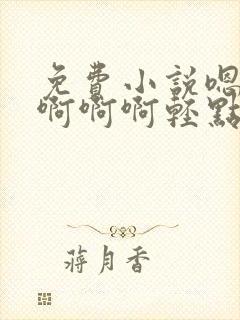 免費小說嗯
啊啊啊輕點
蔣月香